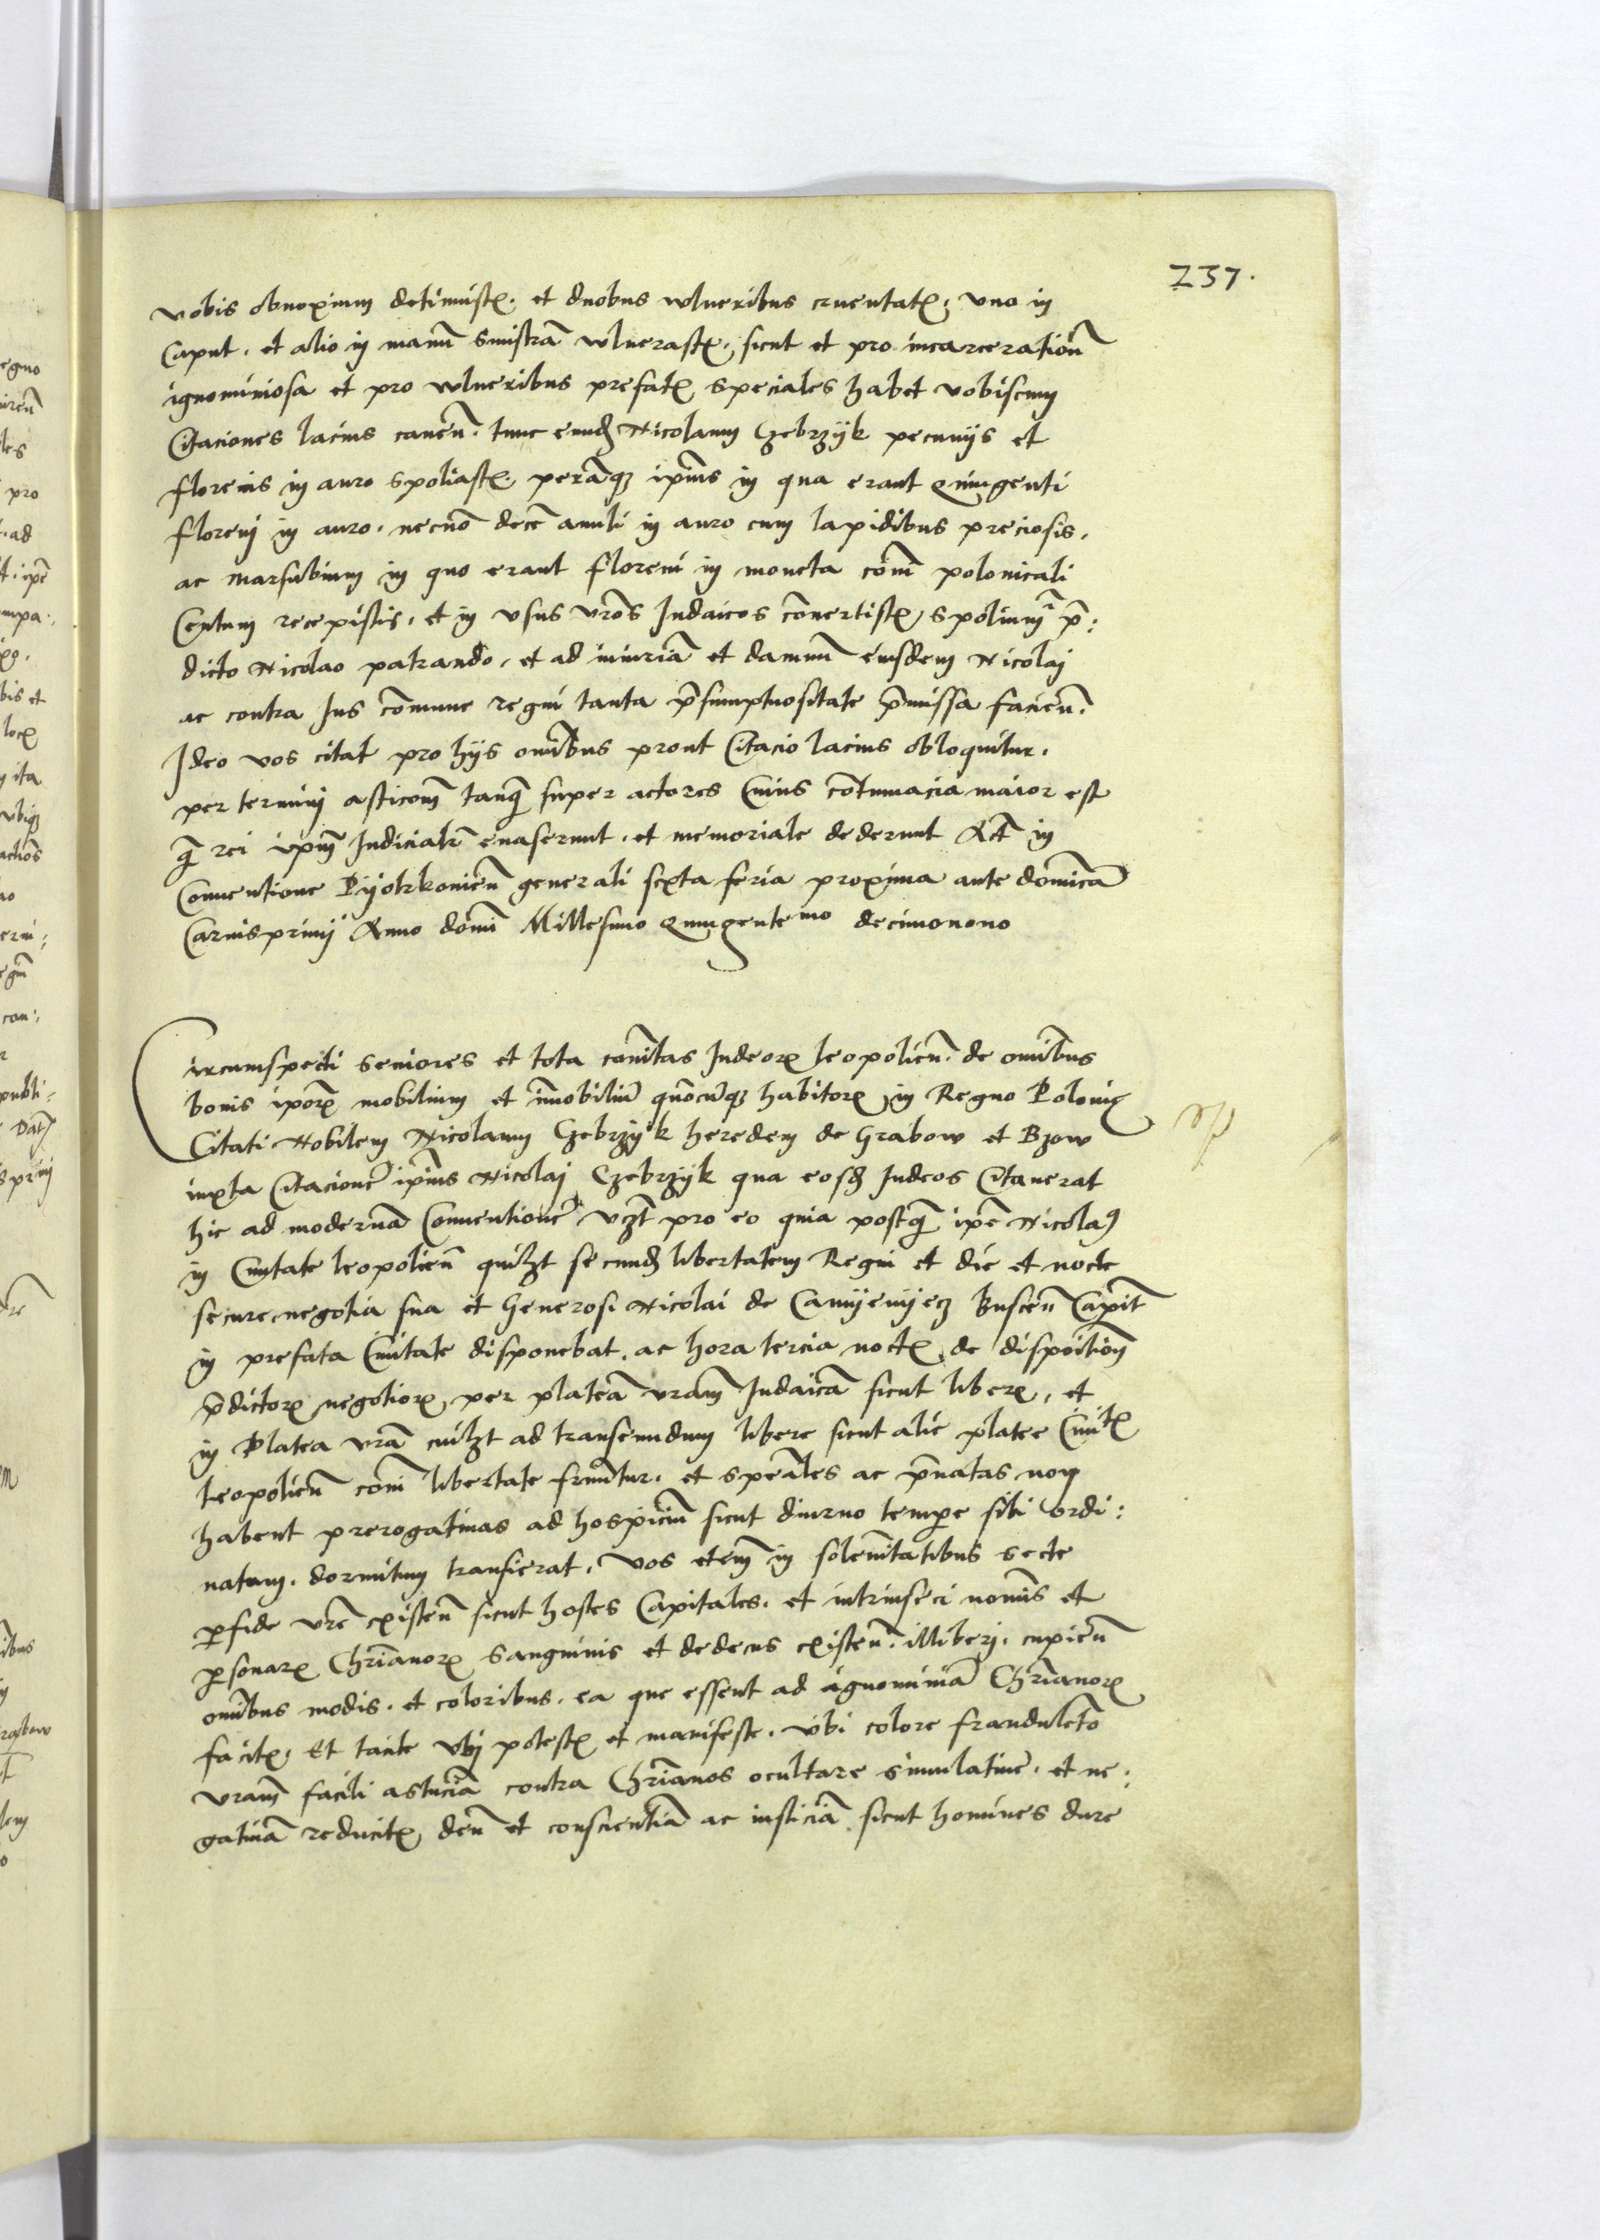 237.
vobis obnoxium detinuistꝭ. et duobus vulneribus cruentatꝭ. vno in
Caput. et alio in manũ sinistrã vulnerastꝭ. sicut et pro incarceratioñ
ignominiosa et pro vulneribus prefatꝭ speciales habet vobiscum
Citaciones lacius caneñ. tunc eundꝫ Nicolaum Czebrzyk pecunijs et
florenis in auro spoliastꝭ. perãqꝫ ip̃ius in qua erant Quingenti
floreni in auro. necnõ decẽ anuli in auro cum lapidibus preciosis.
ac marsubium in quo erant floreni in moneta com̃ polonicali
Centum recepistis. et in vsus vr̃os Iudaicos cõuertistꝭ, spolium p̃:
dicto Nicolao patrando. et ad iniuriã et damnũ eiusdem Nicolai
ac contra Ius cõmune regni tanta p̃sumptuositate p̃missa facieñ.
Ideo vos citat pro hijs om̃ibus prout Citacio lacius obloquitur.
per terminũ acticoñ tanqꝫ super actores Cuius cõtumacia maior est
q̃ rei ip̃m Iudicialr̃ euaserunt. et memoriale dederunt Act̃ in
Conuentione Pyotrkouieñ generali sexta feria proxima ante dominicã
Carnispriuij Anno domĩ Millesimo Quingentemo decimonono
Circumspecti seniores et tota com̃itas Iudeorꝭ leopolieñ. de om̃ibus
bonis ip̃orꝭ mobilium et im̃obiliũ quõcũqꝫ habitorꝭ in Regno Polonie
Citati Nobilem Nicolaum Czebrzyk heredem de Grabow et Bzow
iuxta Citacionẽ ip̃ius Nicolai Czebrzyk qua eosdꝫ Iudeos Citauerat
hic ad modernã Conuentionẽ vꝫt pro eo quia postq̃ ip̃e Nicolaꝰ
in Ciuitate leopolieñ quilꝫt secundꝫ libertatem Regni et die et nocte
secure negotia sua et Generosi Nicolai de Camyenyecz Busceñ Capit̃
in prefata Ciuitate disponebat. ac hora tercia noctꝭ de dispoitioñ
p̃dictorꝭ negotiorꝭ, per plateã vr̃am Iudaicã sicut liberꝭ, et
in Platea vr̃a cuilꝫt ad transeundum libere sicut alie platee Ciuitꝭ
leopolieñ com̃ libertate fruũtur. et sp̃eales ac p̃uatas non
habent prerogatiuas ad hospiciũ sicut diurno tempe sibi ordi:
natum. dormitum transierat. Vos eteñ in solem̃itatibus secte
ꝑfide vr̃e existeñ sicut hostes Capitales. et intrinseci nomĩs et
ꝑsonarꝭ Chr̃ianorꝭ sanguinis et dedecus existeñ. illiberj. cupieñ
om̃ibus modis. et coloribus. ea que essent ad ignominiã Chr̃ianorꝭ
facitꝭ. Et tante vbj potestꝭ et manifeste. vbi colore fraudulẽto
vr̃am facili astuciã contra Chr̃ianos ocultare simulatiuẽ. et ne:
gatiuã reducitꝭ, deũ et conscientiã ac iusticiã sicut homines dure